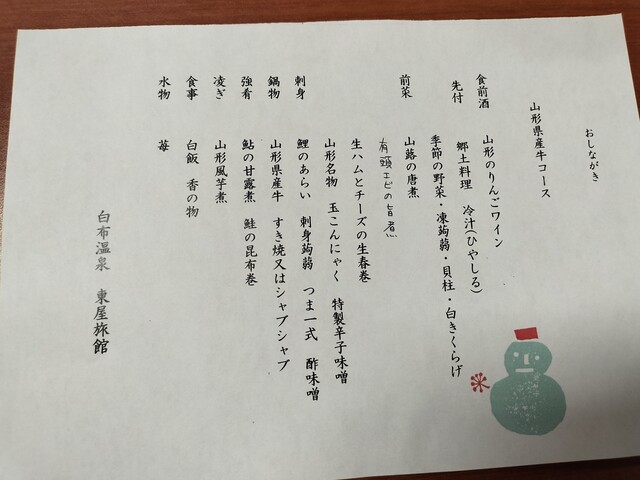 おしながき
山形県産牛コース
食前酒 山形のりんごワイン
先付 郷土料理 冷汁(ひやしる)
季節の野菜・凍蒟蒻・貝柱・白きくらげ
前菜 山蕗の唐煮
有頭エビの旨煮
生ハムとチーズの生春巻
山形名物 玉こんにゃく 特製辛子味噌
刺身 鯉のあらい 刺身蒟蒻 つま一式 酢味噌
鍋物 山形県産牛 すき焼又はシャブシャブ
強肴 鮎の甘露煮 鮭の昆布巻
凌ぎ 山形風芋煮
食事 白飯 香の物
水物 苺
白布温泉 東屋旅館